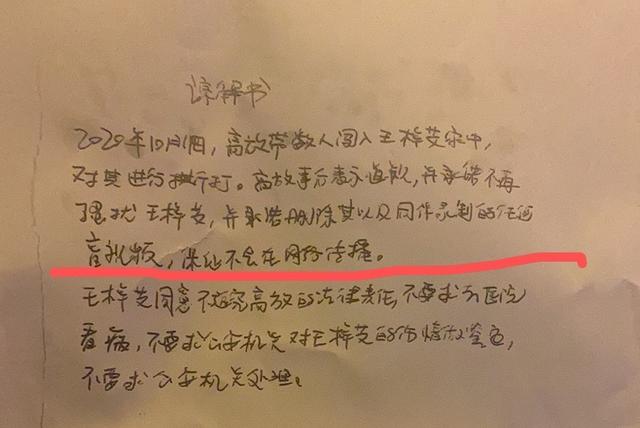 谅解书
2020年10月31日,高放带数人闯入王梓芠家中,
对其进行殴打。高放事后表示道歉,并承诺不再
骚扰王梓芠,并承诺删除其以及同伴录制的任何
音视频,保证不会在网络传播。
王梓芠同意不追究高放的法律责任,不要求去医院
看病,不要求公安机关对王梓芠的伤情做鉴定,
不要求公安机关处理。